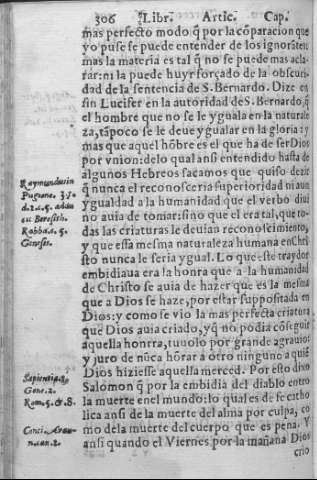 306 Libr. Artic. Cap.
mas perfecto modo q̃ por la cõparacion que
yo puse se puede entender de los ignorãtes:
mas la materia es tal q̃ no se puede mas acla-
rar: ni la puede huyr forçado de la obscuri
dad de la sentencia de S. Bernardo. Dize en
fin Lucifer en la autoridad de S. Bernardo, q̃
el hombre que no se le yguala en la naturale
za, tãpoco se le deue ygualar en la gloria: y
mas que aquel hõbre es el que ha de ser Dios
por vnion: de lo qual ansi entendido hasta de
algunos Hebreos sacamos que quiso dezir
q̃ nunca el reconosceria superioridad ni aun
ygualdad a la humanidad que el verbo diui
no auia de tomar: sino que el era tal, que to-
das las criaturas le deuian reconoscimiento,
y que essa mesma naturaleza humana en Chri
sto nunca le seria ygual. Lo que este traydor
embidiaua era la honra que a la humanidad
de Christo se auia de hazer que es la mesma
que a Dios se haze, por estar suppositada en
Dios: y como se vio la mas perfecta criatura
que Dios auia criado, y q̃ no podia cõseguir
aquella honrra, tuuolo por grande agrauio:
y juro de nũca hõrar a otro ninguno a quiẽ
Dios hiziesse aquella merced. Por esto dixo
Salomon q̃ por la embidia del diablo entro
la muerte en el mundo: lo qual es de fe catho
lica ansi de la muerte del alma por culpa, co
mo de la muerte del cuerpo que es pena. Y
ansi quando el Viernes por la mañana Dios
crio
Raymundus in
Pugione. 3. p.
d. 2. c. 5.
en Beresith.
Rabba. c. 5.
Genesis.
Sapientiæ. 2.
Gene. 2.
Rom. 5. & 8.
Conci. Arau-